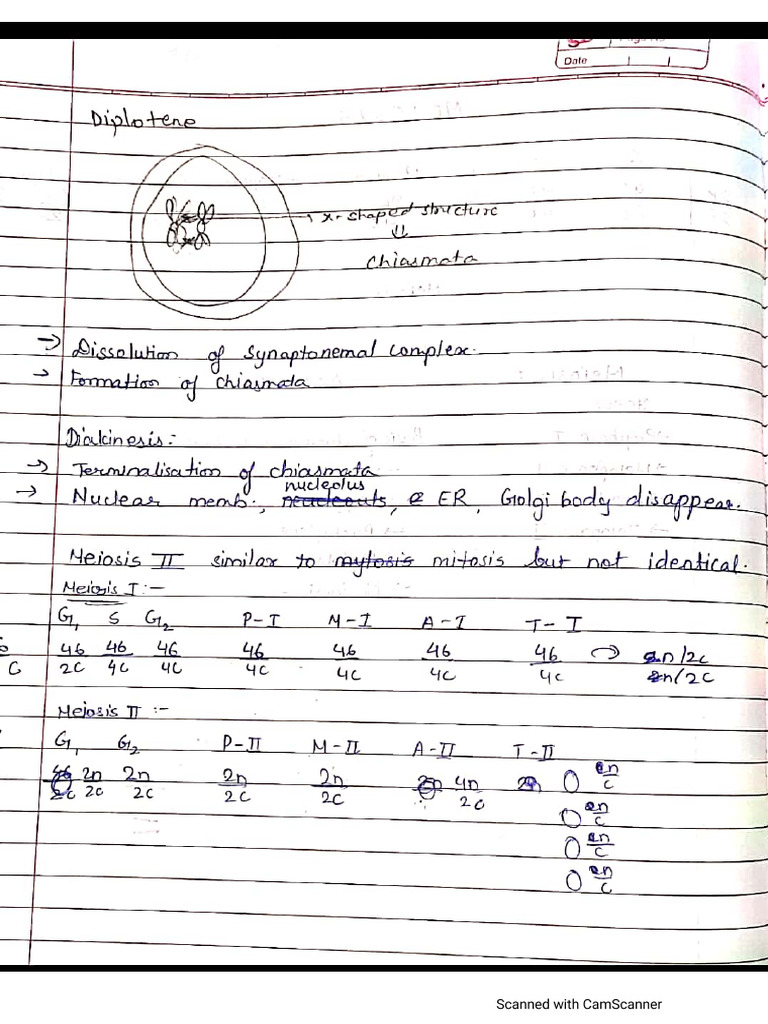 Date
Diplotene
x-shaped structure
⇓
Chiasmata
→ Dissolution of synaptonemal complex.
→ Formation of chiasmata
Diakinesis:-
→ Terminalisation of chiasmata
nucleolus
→ Nuclear memb., ER, Golgi body disappear.
Meiosis II similar to mytosis mitosis but not identical.
Meiosis I :-
G1 S G2 P-I M-I A-I T-I
46/2C 46/4C 46/4C 46/4C 46/4C 46/4C 46/4C → n/2C
C n/2C
Meiosis II :-
G1 G2 P-II M-II A-II T-II
46/2C 2n/2C 2n/2C 2n/2C 2n/2C 4n/2C n/C
n/C
n/C
n/C
Scanned with CamScanner